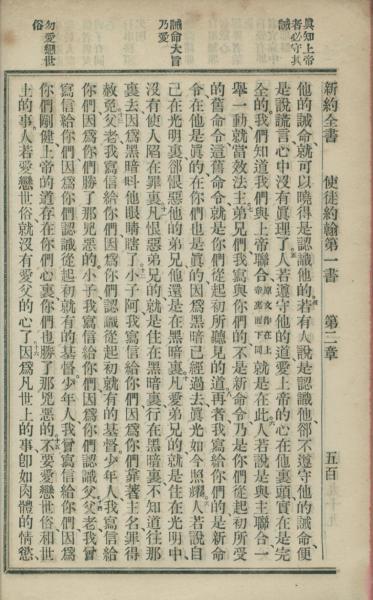 新約全書　使徒約翰第一書　第二章　五百
眞知上帝
者必守其
誡
誡命大旨
乃愛
勿愛戀世
俗
他的誡命、就可以曉得是認識他的、若有人說是認識他、卻不遵守他的誡命、便
是說謊言、心中沒有眞理了、人若遵守他的道、愛上帝的心、在他裏頭實在是完
全的、我們知道我們與上帝聯合、原文作在上帝裏面下同就是在此、人若說是與主聯合、一
舉一動、就當效法主、弟兄們、我寫與你們的、不是新命令、乃是你們從起初所受
的舊命令、這舊命令、就是你們從起初所聽見的道、再者、我寫給你們的、是新命
令、在他是眞的、在你們也是眞的、因爲黑暗已經過去、眞光如今照耀、人若說自
己在光明裏、卻恨惡他的弟兄、他還是在黑暗裏、凡愛弟兄的、就是住在光明中、
沒有使人陷在罪裏、凡恨惡弟兄的、就是住在黑暗裏、行在黑暗裏、不知道往那
裏去、因爲黑暗叫他眼睛瞎了、小子阿、我寫信給你們、因爲你們靠著主名、罪得
赦免、父老、我寫信給你們、因爲你們認識從起初就有的基督、少年人、我寫信給
你們、因爲你們勝了那兇惡的、小子、我寫信給你們、因爲你們認識父、父老、我曾
寫信給你們、因爲你們認識從起初就有的基督、少年人、我曾寫信給你們、因爲
你們剛健、上帝的道存在你們心裏、你們也勝了那兇惡的、不要愛戀世俗、和世
上的事、人若愛戀世俗、就沒有愛父的心了、因爲凡世上的事、卽如肉體的情慾、